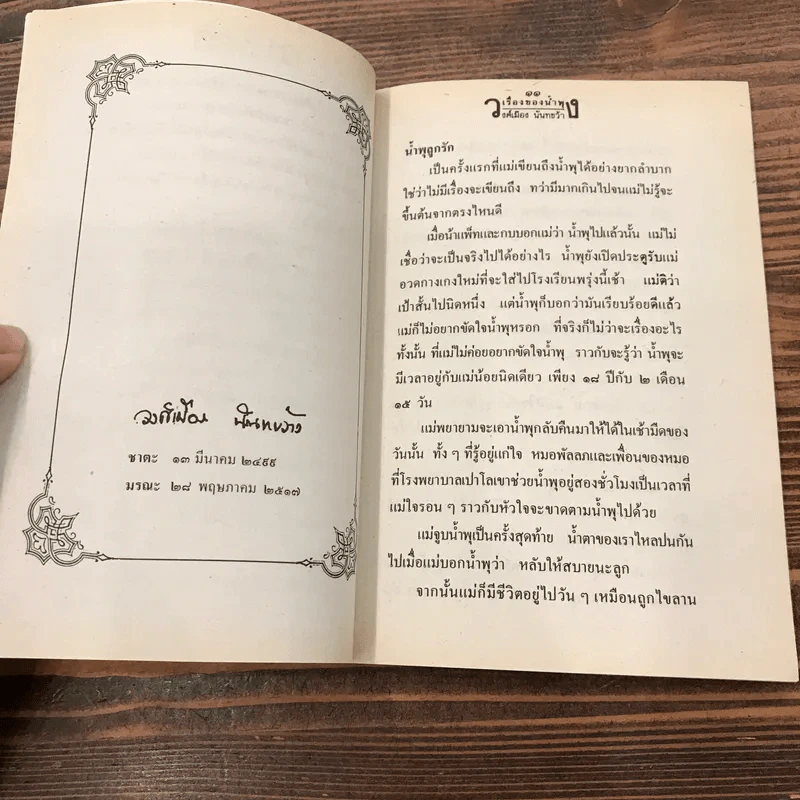 วงศ์เมือง นันทขว้าง
ชาตะ ๑๓ มีนาคม ๒๔๙๙
มรณะ ๒๘ พฤษภาคม ๒๕๑๗
เรื่องของน้ำพุ
วงศ์เมือง นันทขว้าง
น้ำพุลูกรัก
เป็นครั้งแรกที่แม่เขียนถึงน้ำพุได้อย่างยากลำบาก
ใช่ว่าไม่มีเรื่องจะเขียนถึง ทว่ามีมากเกินไปจนแม่ไม่รู้จะ
ขึ้นต้นจากตรงไหนดี
เมื่อน้าแพ็ทและกบบอกแม่ว่า น้ำพุไปแล้วนั้น แม่ไม่
เชื่อว่าจะเป็นจริงไปได้อย่างไร น้ำพุยังเปิดประตูรับแม่
อวดกางเกงใหม่ที่จะใส่ไปโรงเรียนพรุ่งนี้เช้า แม่ติว่า
เป้าสั้นไปนิดหนึ่ง แต่น้ำพุก็บอกว่ามันเรียบร้อยดีแล้ว
แม่ก็ไม่อยากขัดใจน้ำพุหรอก ที่จริงก็ไม่ว่าจะเรื่องอะไร
ทั้งนั้น ที่แม่ไม่ค่อยอยากขัดใจน้ำพุ ราวกับจะรู้ว่า น้ำพุจะ
มีเวลาอยู่กับแม่น้อยนิดเดียว เพียง ๑๘ ปีกับ ๒ เดือน
๑๕ วัน
แม่พยายามจะเอาน้ำพุกลับคืนมาให้ได้ในเช้ามืดของ
วันนั้น ทั้ง ๆ ที่รู้อยู่แก่ใจ หมอพัลลภและเพื่อนของหมอ
ที่โรงพยาบาลเปาโลเขาช่วยน้ำพุอยู่สองชั่วโมงเป็นเวลาที่
แม่ใจรอน ๆ ราวกับหัวใจจะขาดตามน้ำพุไปด้วย
แม่จูบน้ำพุเป็นครั้งสุดท้าย น้ำตาของเราไหลปนกัน
ไปเมื่อแม่บอกน้ำพุว่า หลับให้สบายนะลูก
จากนั้นแม่ก็มีชีวิตอยู่ไปวัน ๆ เหมือนถูกไขลาน